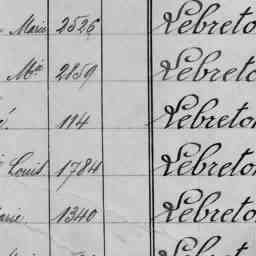 Marie 2526 Lebreton
Mie 2859 Lebreton
114 Lebreton
Louis 1784 Lebreton
Marie 1340 Lebreton
Lebreton